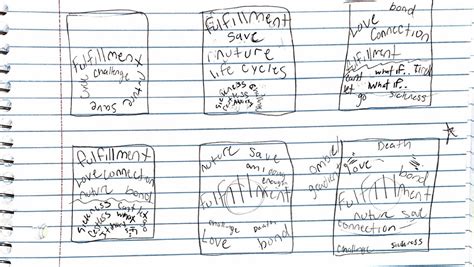 Fulfillment
challenge
Cure
nuture save
Fulfillment
Save
nuture
life cycles
sickness
bond
Love
Connection
fulfillment
can't what if.. Tired
let what if..
go sickness
fulfillment
Love connection
nuture bond
sickness can't let
nuture save
am i
enough
Fulfillment
challenge Death
Love bond
Death
love
bond
Fulfillment
nuture save
connection
challenge sickness